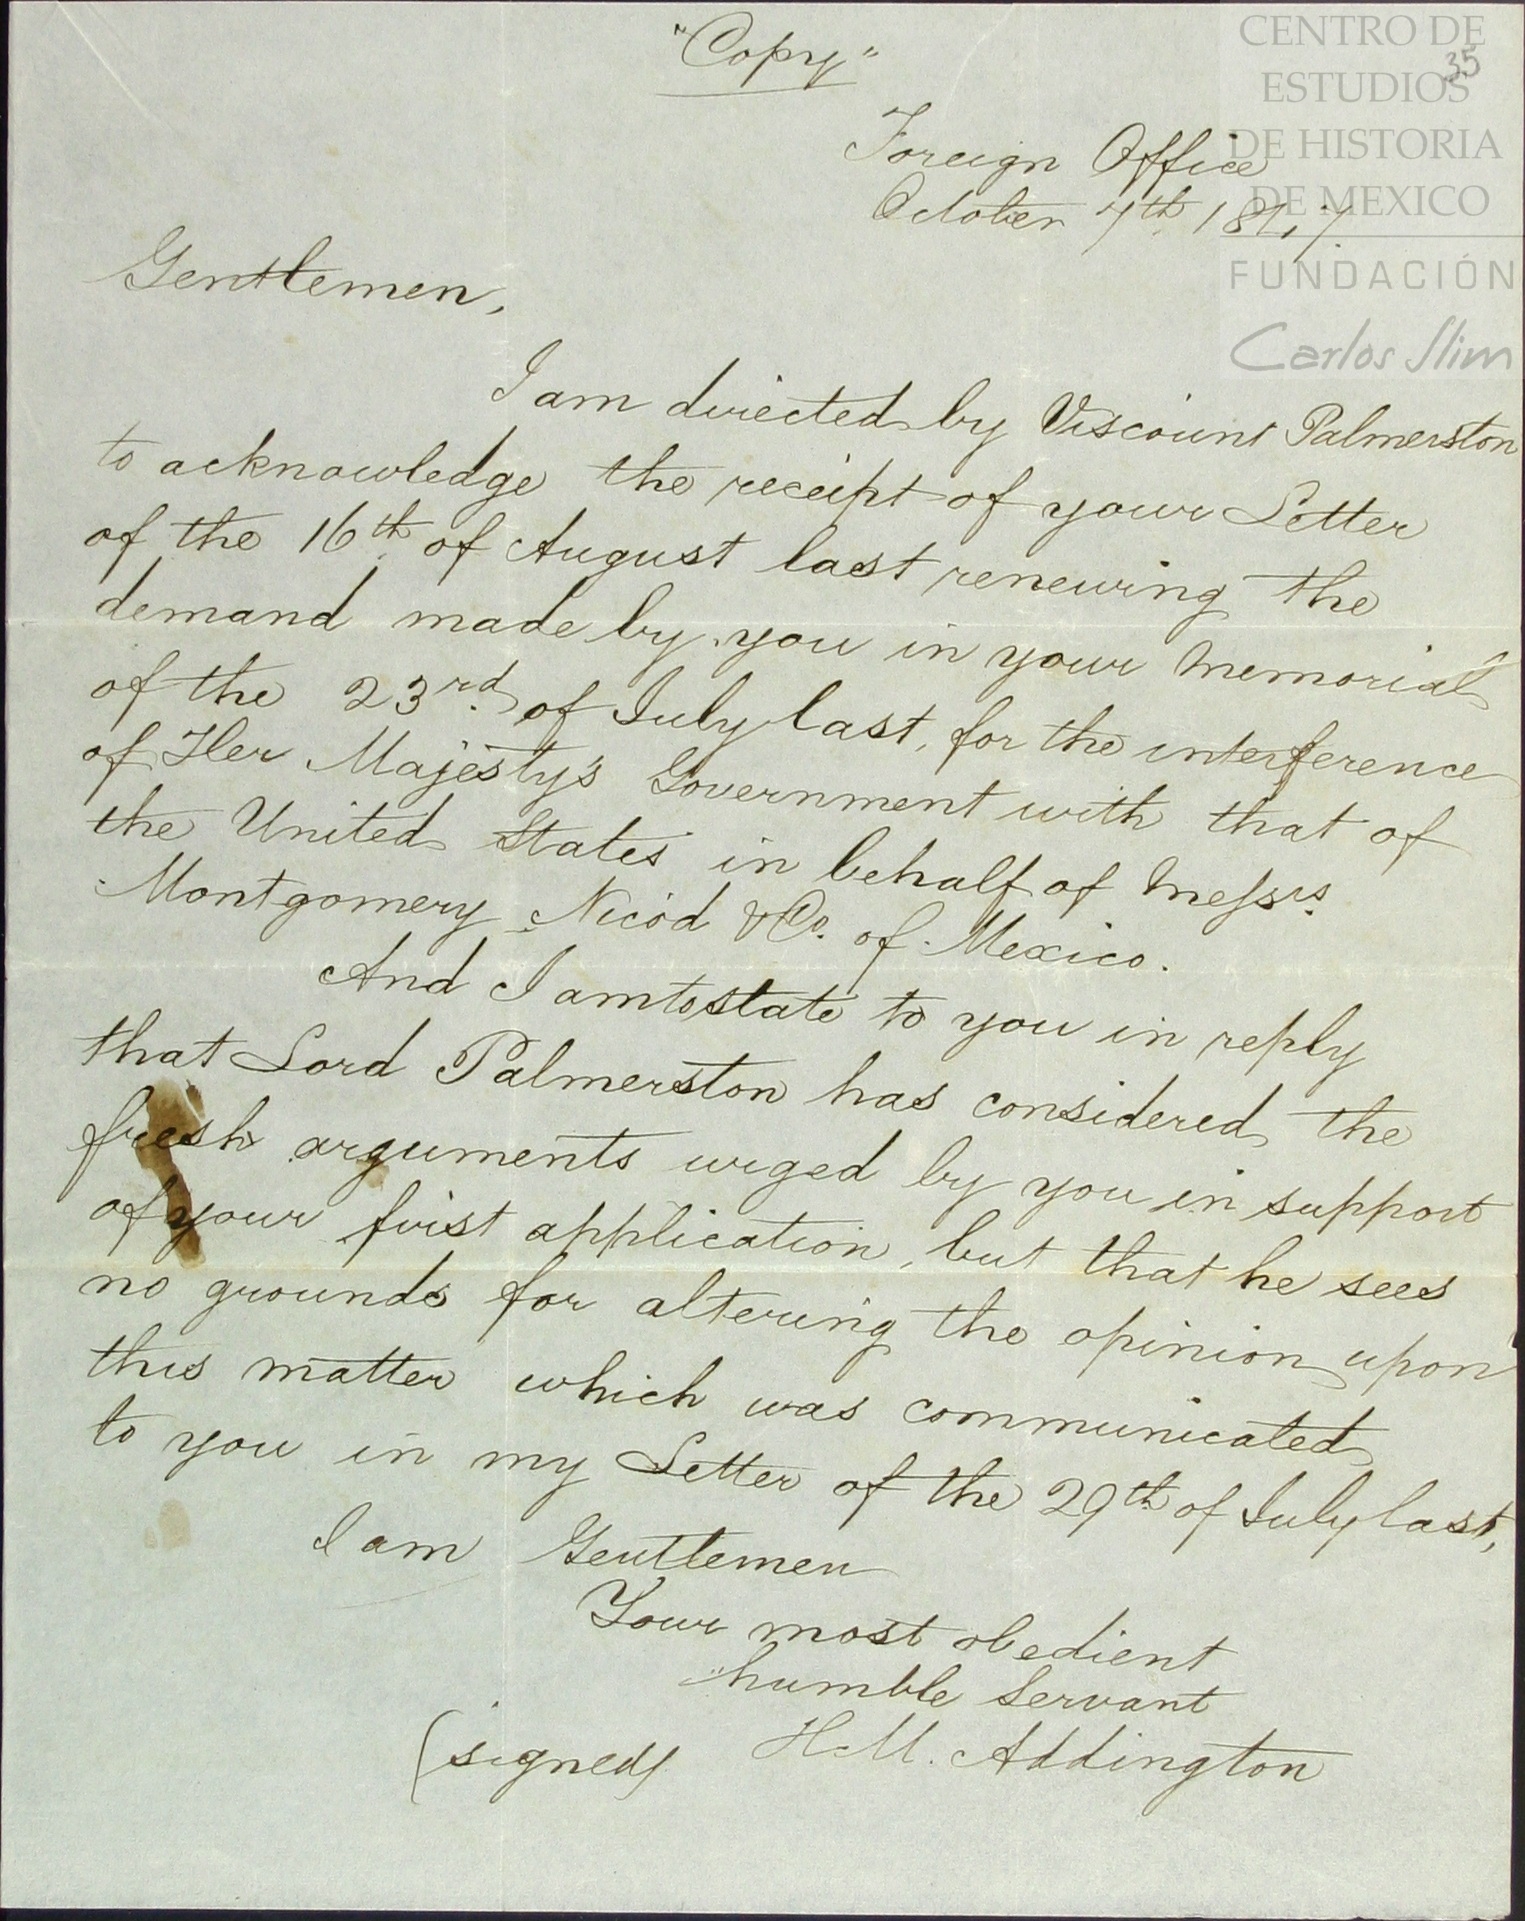 "Copy"
35
CENTRO DE
ESTUDIOS
DE HISTORIA
DE MEXICO
FUNDACIÓN
Carlos Slim
Foreign Office
October 7th 1847.
Gentlemen,
I am directed by Viscount Palmerston
to acknowledge the receipt of your Letter
of the 16th of August last renewing the
demand made by you in your Memorial
of the 23rd of July last, for the interference
of Her Majesty's Government with that of
the United States in behalf of Messrs.
Montgomery Nicod & Co. of Mexico.
And I am to state to you in reply
that Lord Palmerston has considered the
fresh arguments urged by you in support
of your first application, but that he sees
no grounds for altering the opinion upon
this matter which was communicated
to you in my Letter of the 29th of July last,
I am Gentlemen
Your most obedient
humble Servant
(signed) H. M. Addington